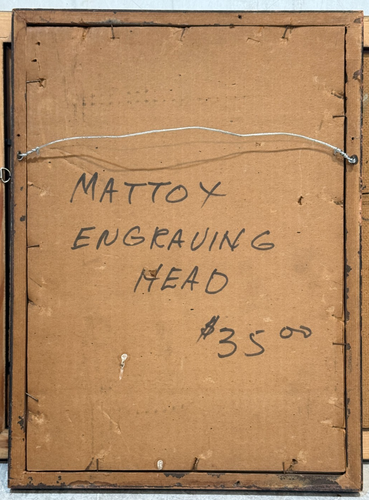 MATTOX
ENGRAVING
HEAD
$35 00